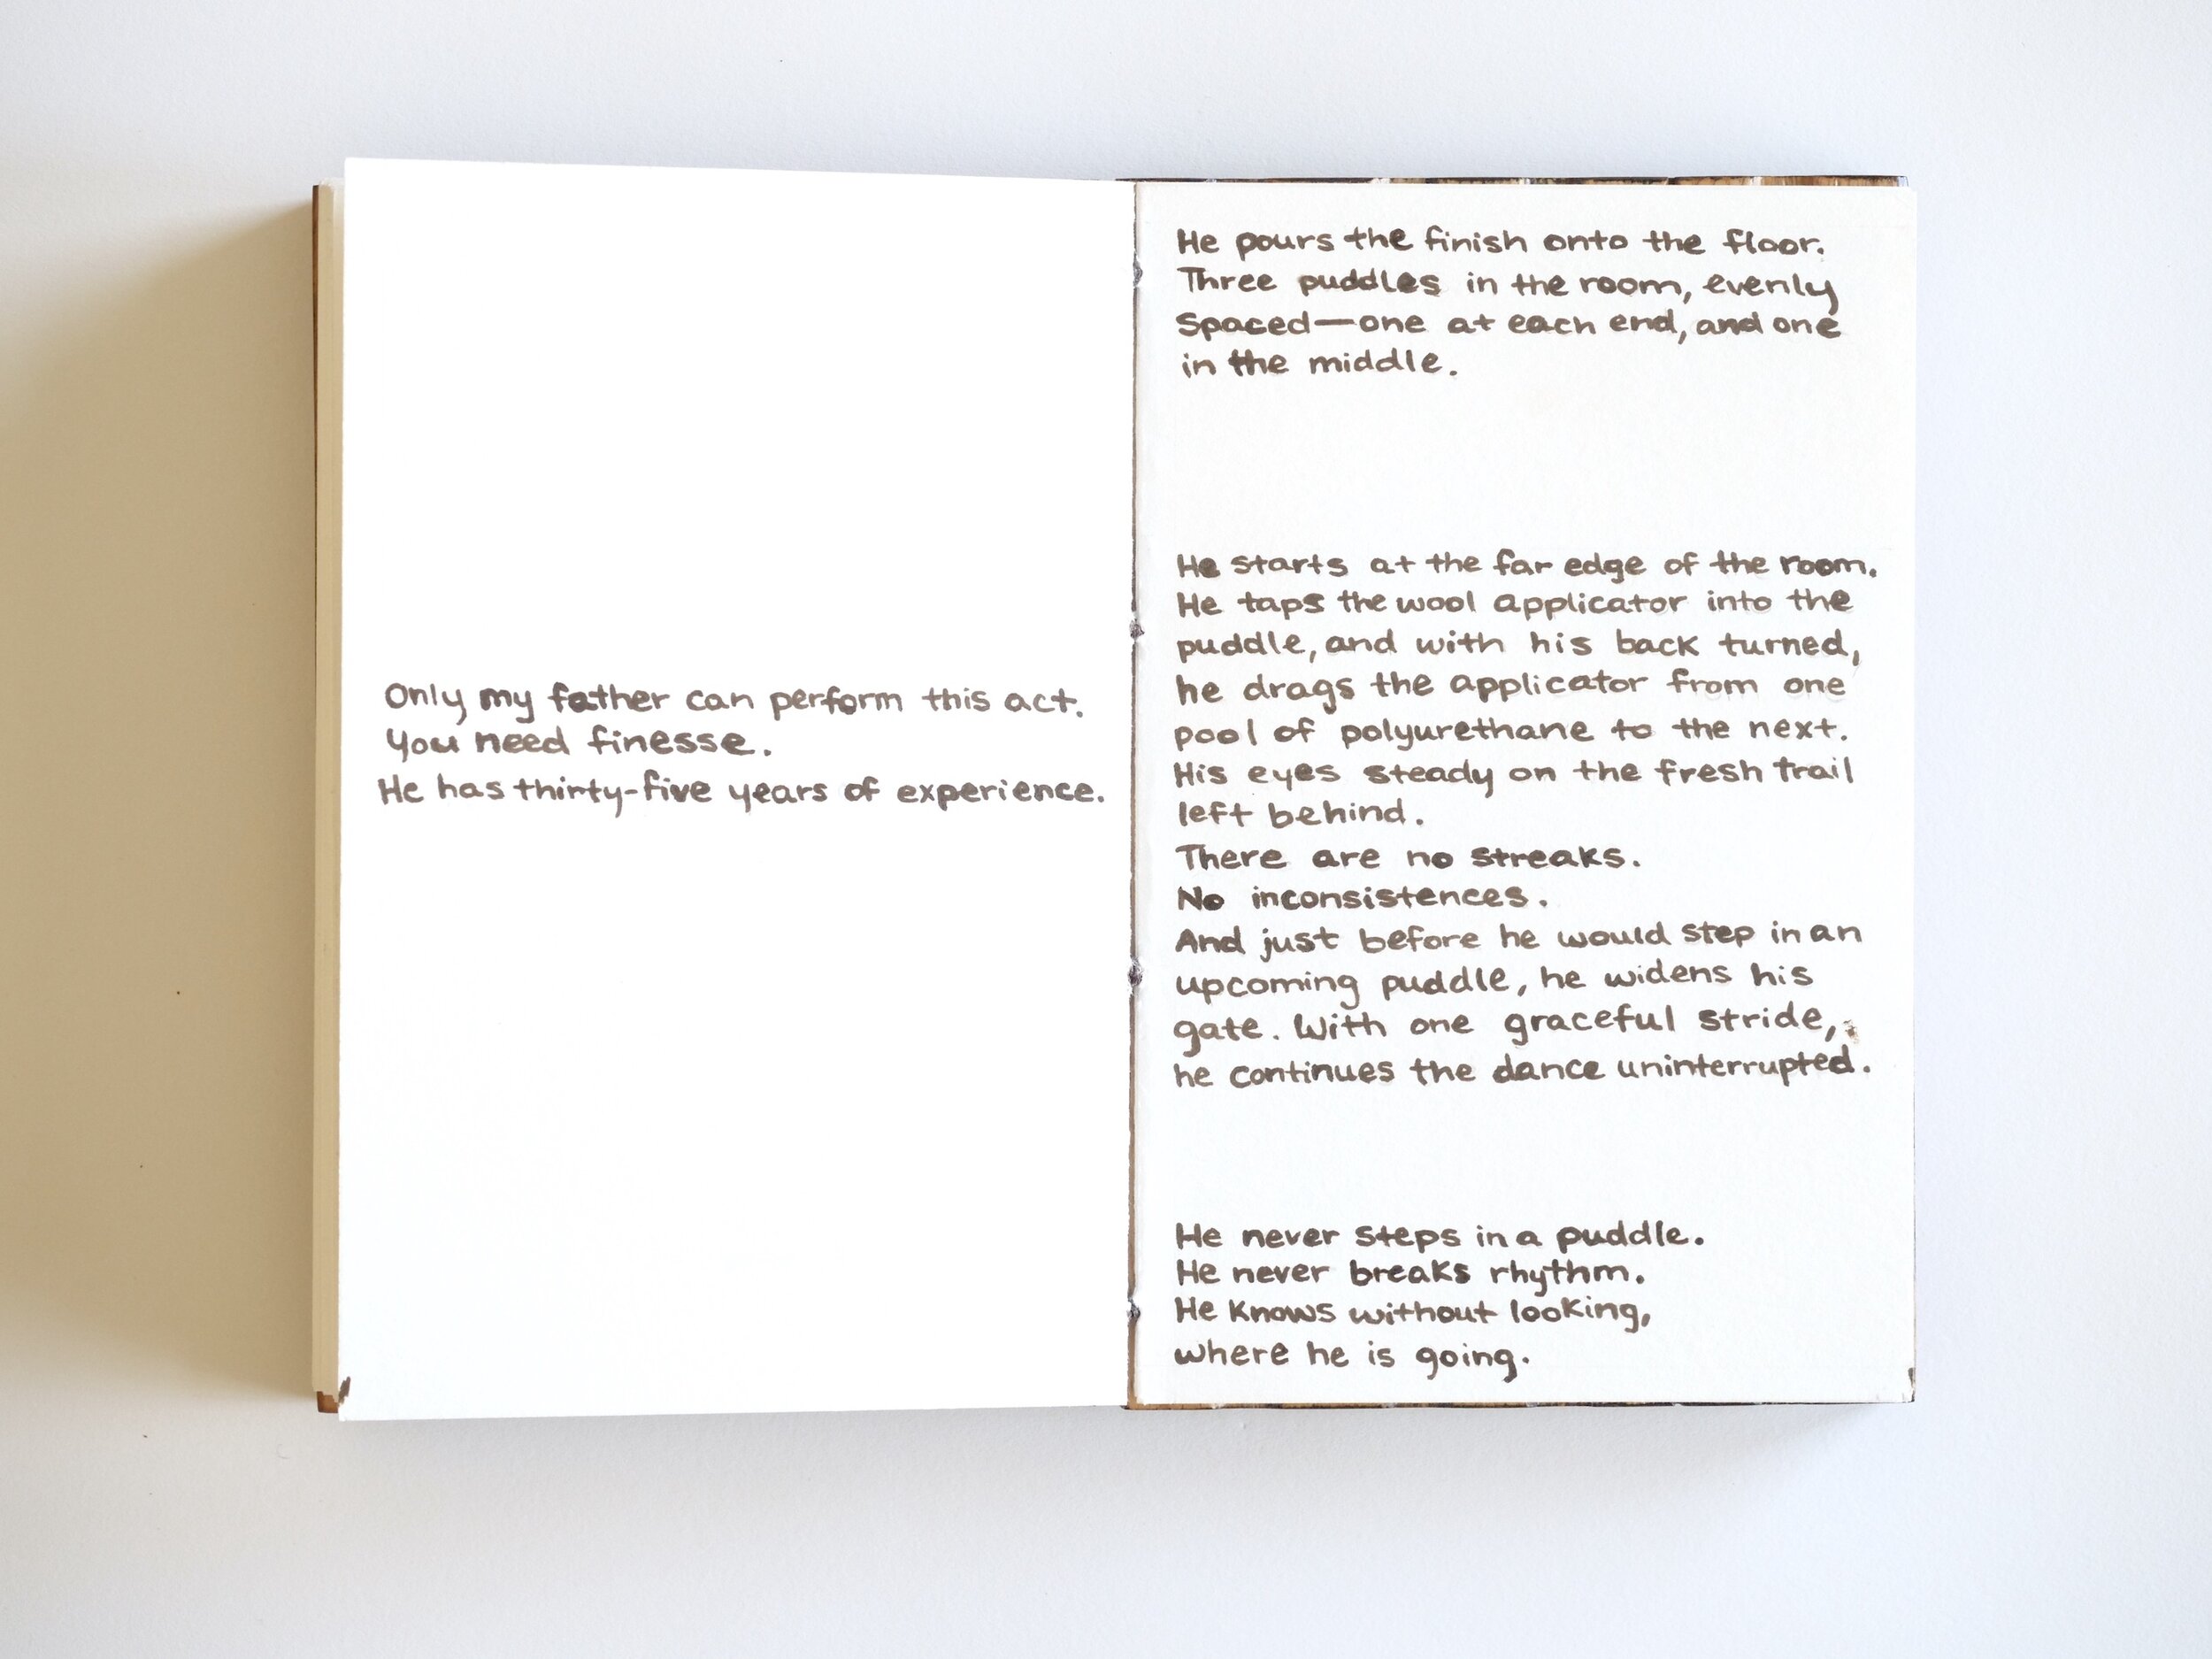 Only my father can perform this act.
You need finesse.
He has thirty-five years of experience.
He pours the finish onto the floor.
Three puddles in the room, evenly
Spaced—one at each end, and one
in the middle.
He starts at the far edge of the room.
He taps the wool applicator into the
puddle, and with his back turned,
he drags the applicator from one
pool of polyurethane to the next.
His eyes steady on the fresh trail
left behind.
There are no streaks.
No inconsistences.
And just before he would step in an
upcoming puddle, he widens his
gate. With one graceful stride,
he continues the dance uninterrupted.
He never steps in a puddle.
He never breaks rhythm.
He knows without looking,
where he is going.